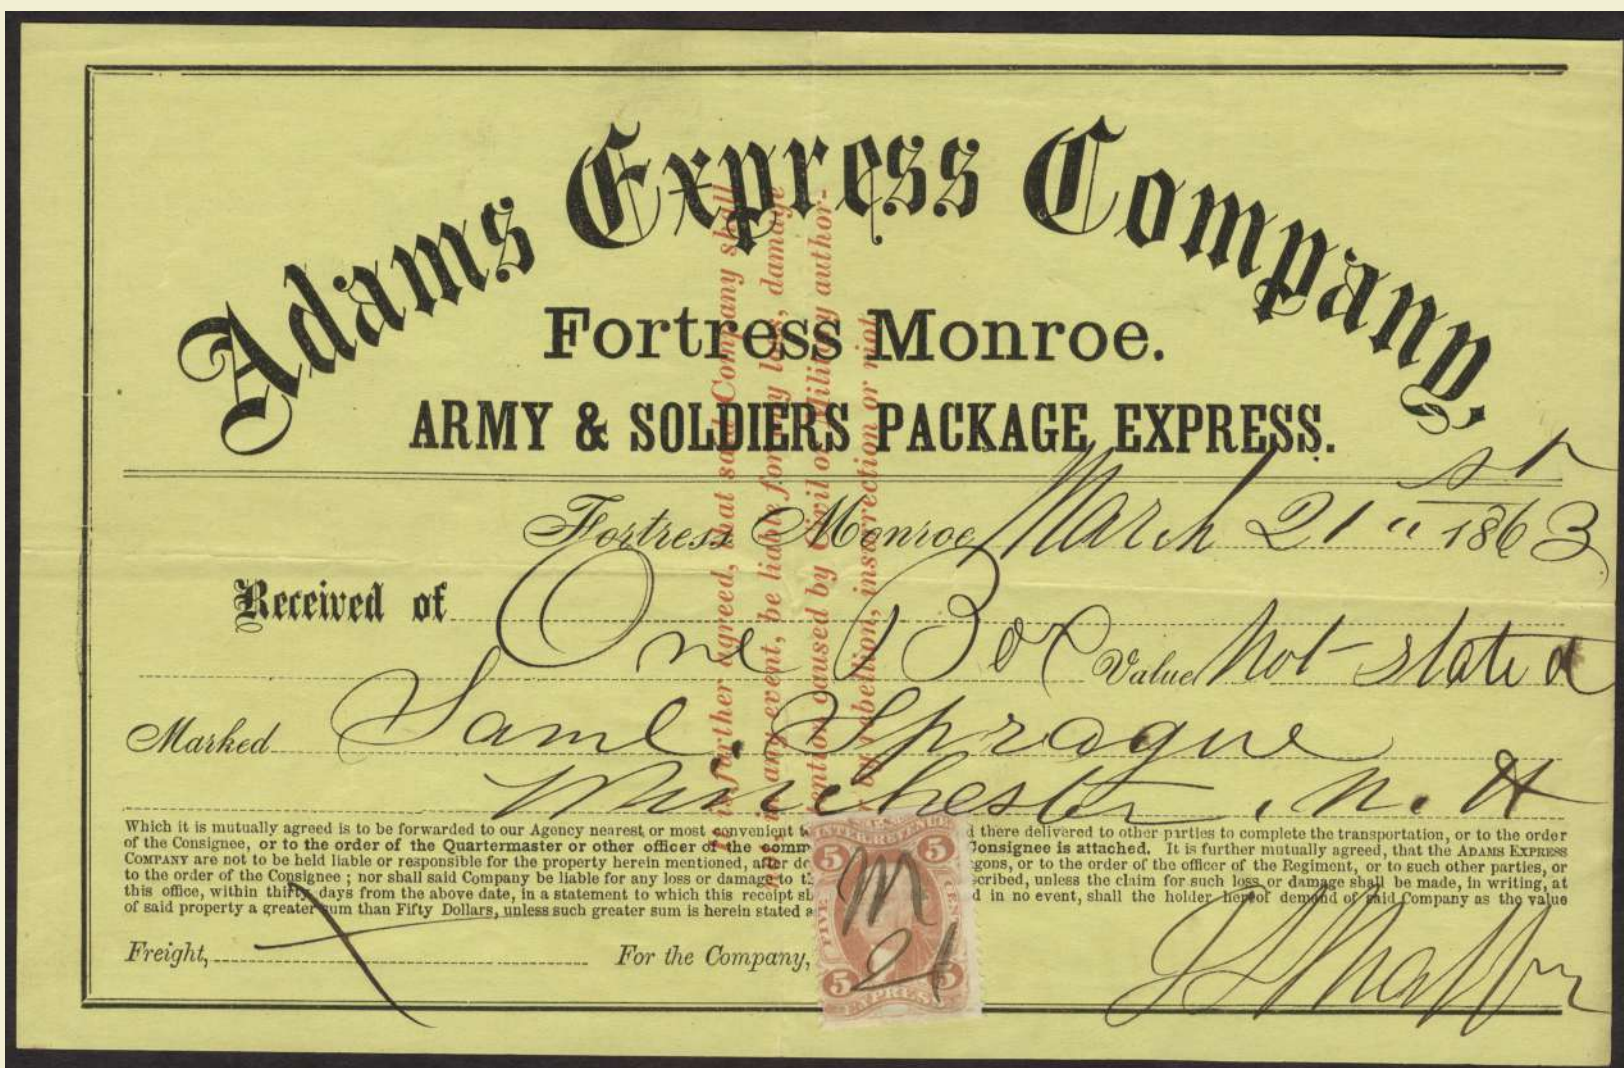 Adams Express Company,
Fortress Monroe.
ARMY & SOLDIERS PACKAGE EXPRESS.
Fortress Monroe, March 21 " st 1863
Received of One Box
Value Not stated
Marked Saml. Sprague
Winchester, N. H
Which it is mutually agreed is to be forwarded to our Agency nearest or most convenient t d there delivered to other parties to complete the transportation, or to the order
of the Consignee, or to the order of the Quartermaster or other officer of the comm Consignee is attached. It is further mutually agreed, that the ADAMS EXPRESS
COMPANY are not to be held liable or responsible for the property herein mentioned, after de gons, or to the order of the officer of the Regiment, or to such other parties, or
to the order of the Consignee ; nor shall said Company be liable for any loss or damage to t cribed, unless the claim for such loss or damage shall be made, in writing, at
this office, within thirty days from the above date, in a statement to which this receipt sh d in no event, shall the holder hereof demand of said Company as the value
of said property a greater sum than Fifty Dollars, unless such greater sum is herein stated a
Freight, For the Company,
It is further agreed, that said Company shall
not in any event, be liable for any loss, damage
tention caused by Civil or Military author-
r by rebellion, insurrection or riot.
U.S. INTER. REVENUE
5 5
FIVE CENTS
M
21
5 5
EXPRESS